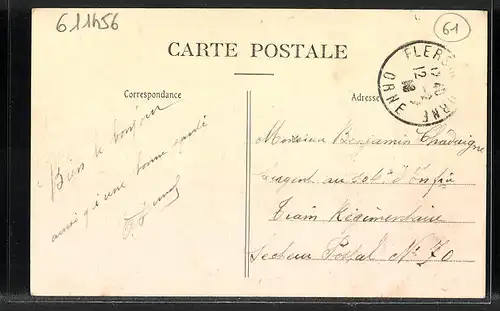 611456
61
CARTE POSTALE
FLERS ORNE
12
ORNE
Correspondance
Adresse
Bien le bonjour
ainsi qu'une bonne santé
Monsieur Benjamin Chadaigne
Sergent au 30e d'Enfie
Train Régimentaire
Secteur Postal No 70